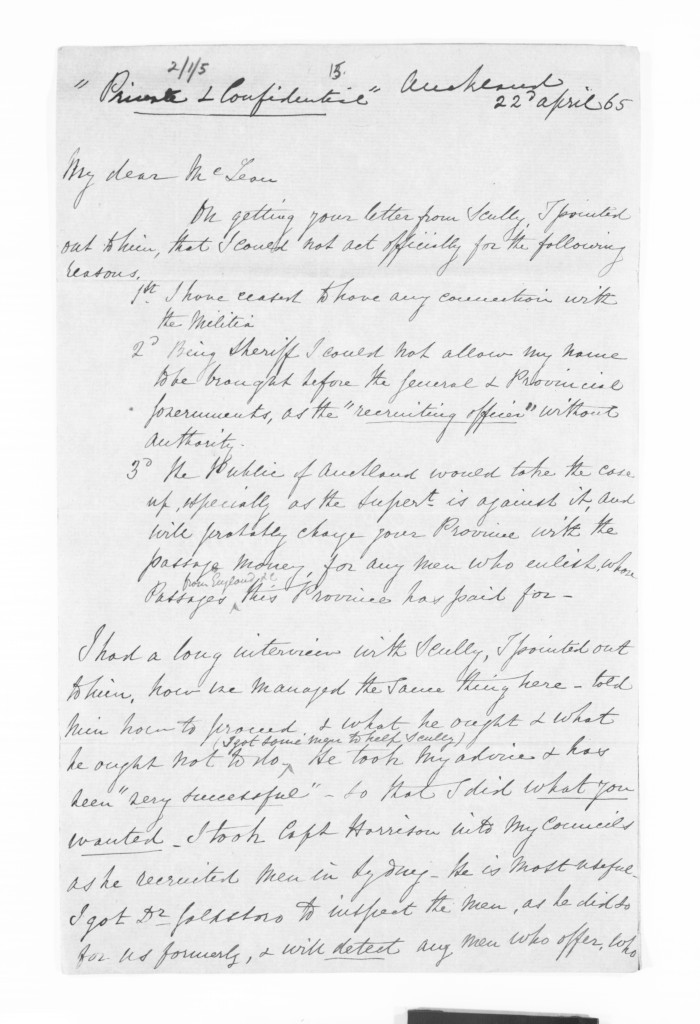 2/1/5 15.
"Private & Confidential" Auckland
22d April 65
My dear McLean
On getting your letter from Scully, I pointed
out to him, that I could not act officially for the following
reasons.
1st. I have ceased to have any connection with
the Militia
2d Being Sheriff I could not allow my name
to be brought before the General & Provincial
Governments, as the "recruiting officer" without
authority.
3d The Public of Auckland would take the case
up, especially as the Supert. is against it, and
will probably charge your Province with the
passage money, for any men who enlist, whose
from England &c
Passages ‸ this Province has paid for –
I had a long interview with Scully, I pointed out
to him, how we managed the same thing here – told
him how to proceed, & what he ought & what
(I got some men to help Scully)
he ought not to do ‸ He took my advice & has
been "very successful" – so that I did what you
wanted – I took Capt Harrison into my Councils
as he recruited men in Sydney – He is most useful –
I got Dr Goldsboro to inspect the men, as he did so
for us formerly, & will detect any men who offer, who